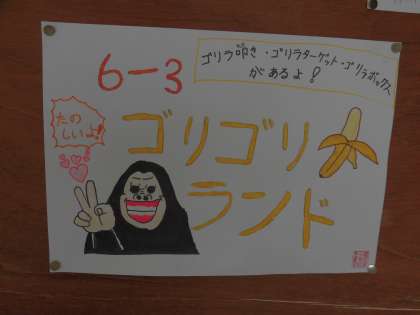 6-3
ゴリラ叩き・ゴリラターゲット・ゴリラボックス
があるよ!
たの
しいよ!
ゴリゴリ
ランド